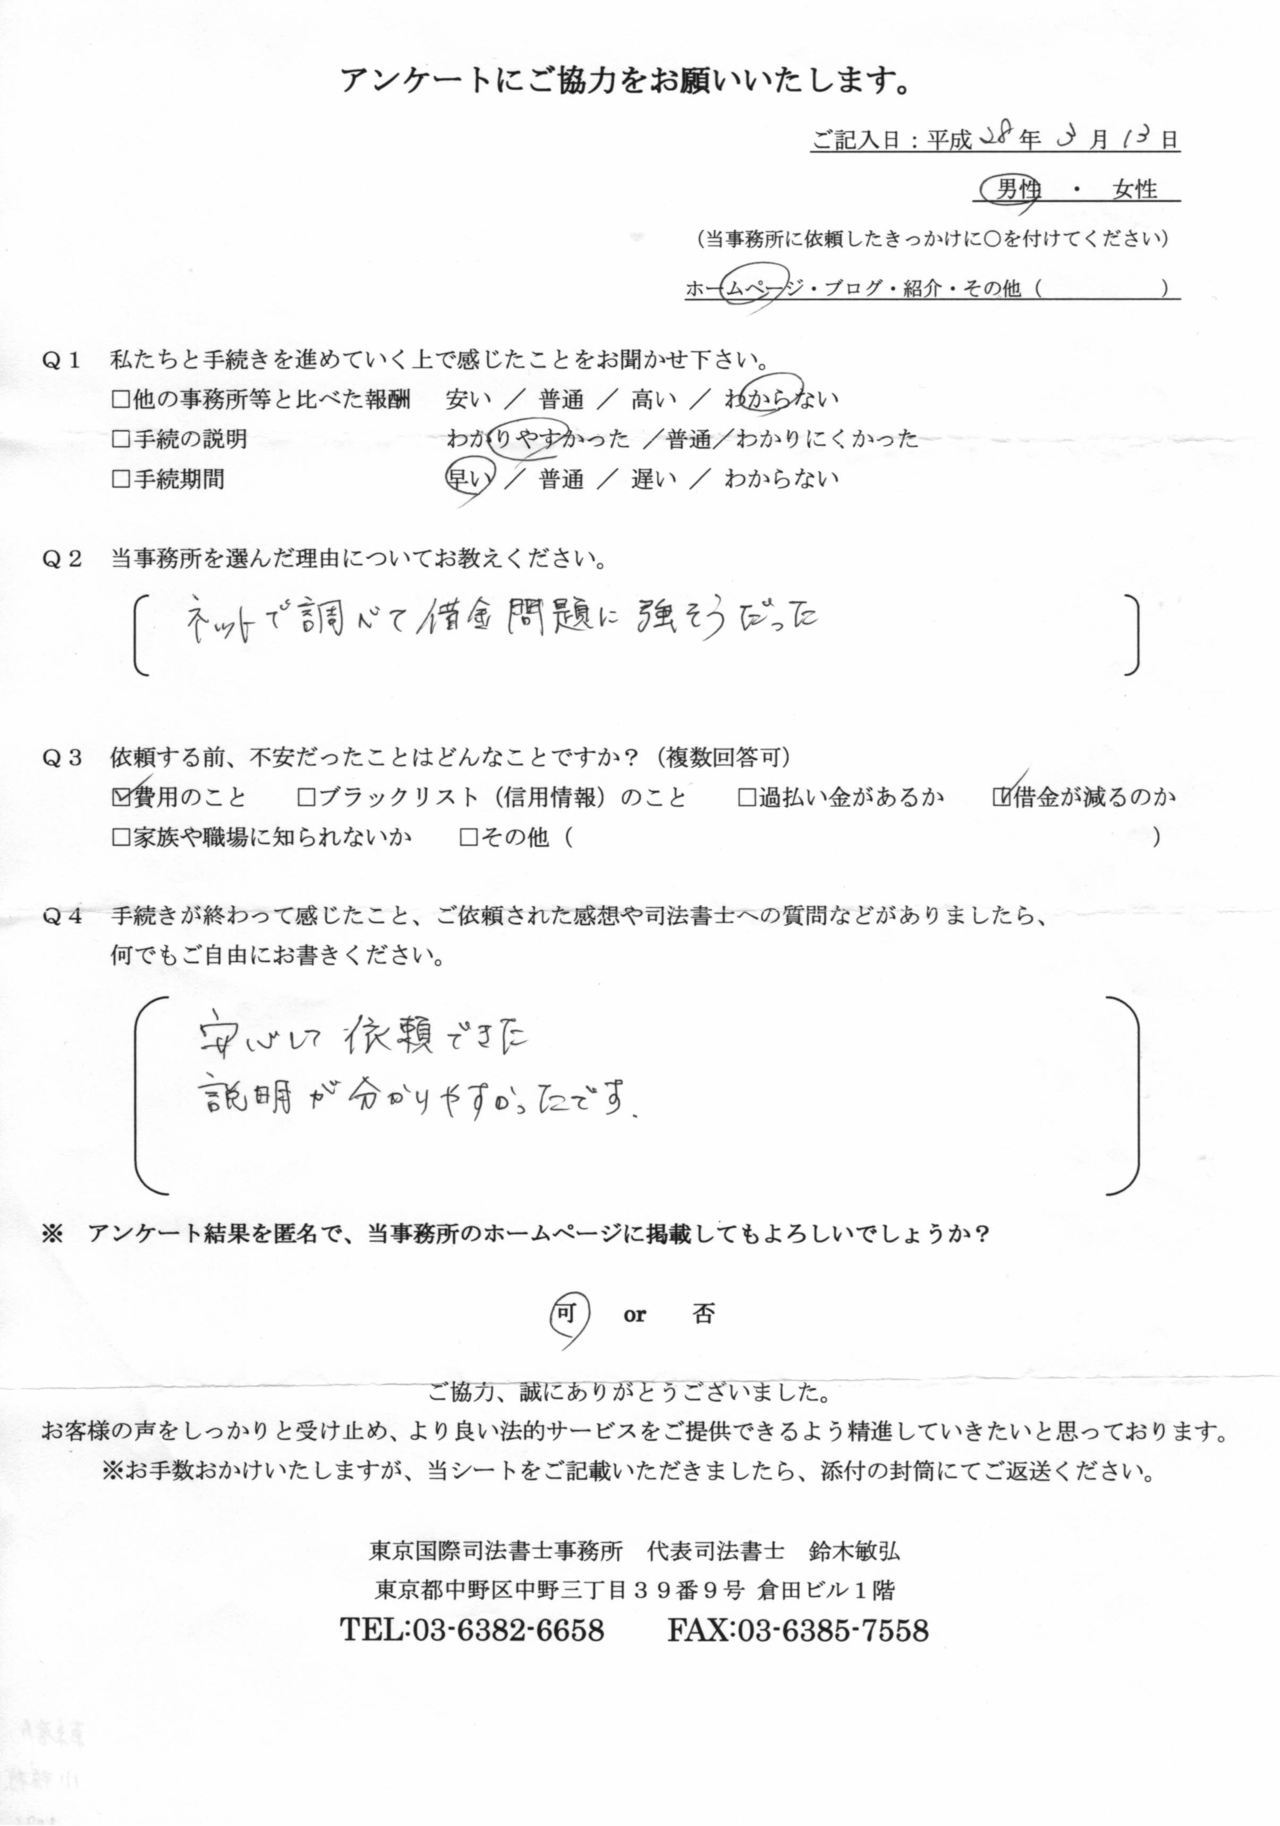 アンケートにご協力をお願いいたします。
ご記入日：平成28年 3月13日
男性 ・ 女性
（当事務所に依頼したきっかけに○を付けてください）
ホームページ・ブログ・紹介・その他（ ）
Ｑ１ 私たちと手続きを進めていく上で感じたことをお聞かせ下さい。
□他の事務所等と比べた報酬 安い ／ 普通 ／ 高い ／ わからない
□手続の説明 わかりやすかった ／普通／わかりにくかった
□手続期間 早い ／ 普通 ／ 遅い ／ わからない
Ｑ２ 当事務所を選んだ理由についてお教えください。
ネットで調べて借金問題に強そうだった
Ｑ３ 依頼する前、不安だったことはどんなことですか？（複数回答可）
☑費用のこと □ブラックリスト（信用情報）のこと □過払い金があるか ☑借金が減るのか
□家族や職場に知られないか □その他（ ）
Ｑ４ 手続きが終わって感じたこと、ご依頼された感想や司法書士への質問などがありましたら、
何でもご自由にお書きください。
安心して依頼できた
説明が分かりやすかったです.
※ アンケート結果を匿名で、当事務所のホームページに掲載してもよろしいでしょうか？
可 or 否
ご協力、誠にありがとうございました。
お客様の声をしっかりと受け止め、より良い法的サービスをご提供できるよう精進していきたいと思っております。
※お手数おかけいたしますが、当シートをご記載いただきましたら、添付の封筒にてご返送ください。
東京国際司法書士事務所 代表司法書士 鈴木敏弘
東京都中野区中野三丁目３９番９号 倉田ビル１階
TEL:03-6382-6658 FAX:03-6385-7558